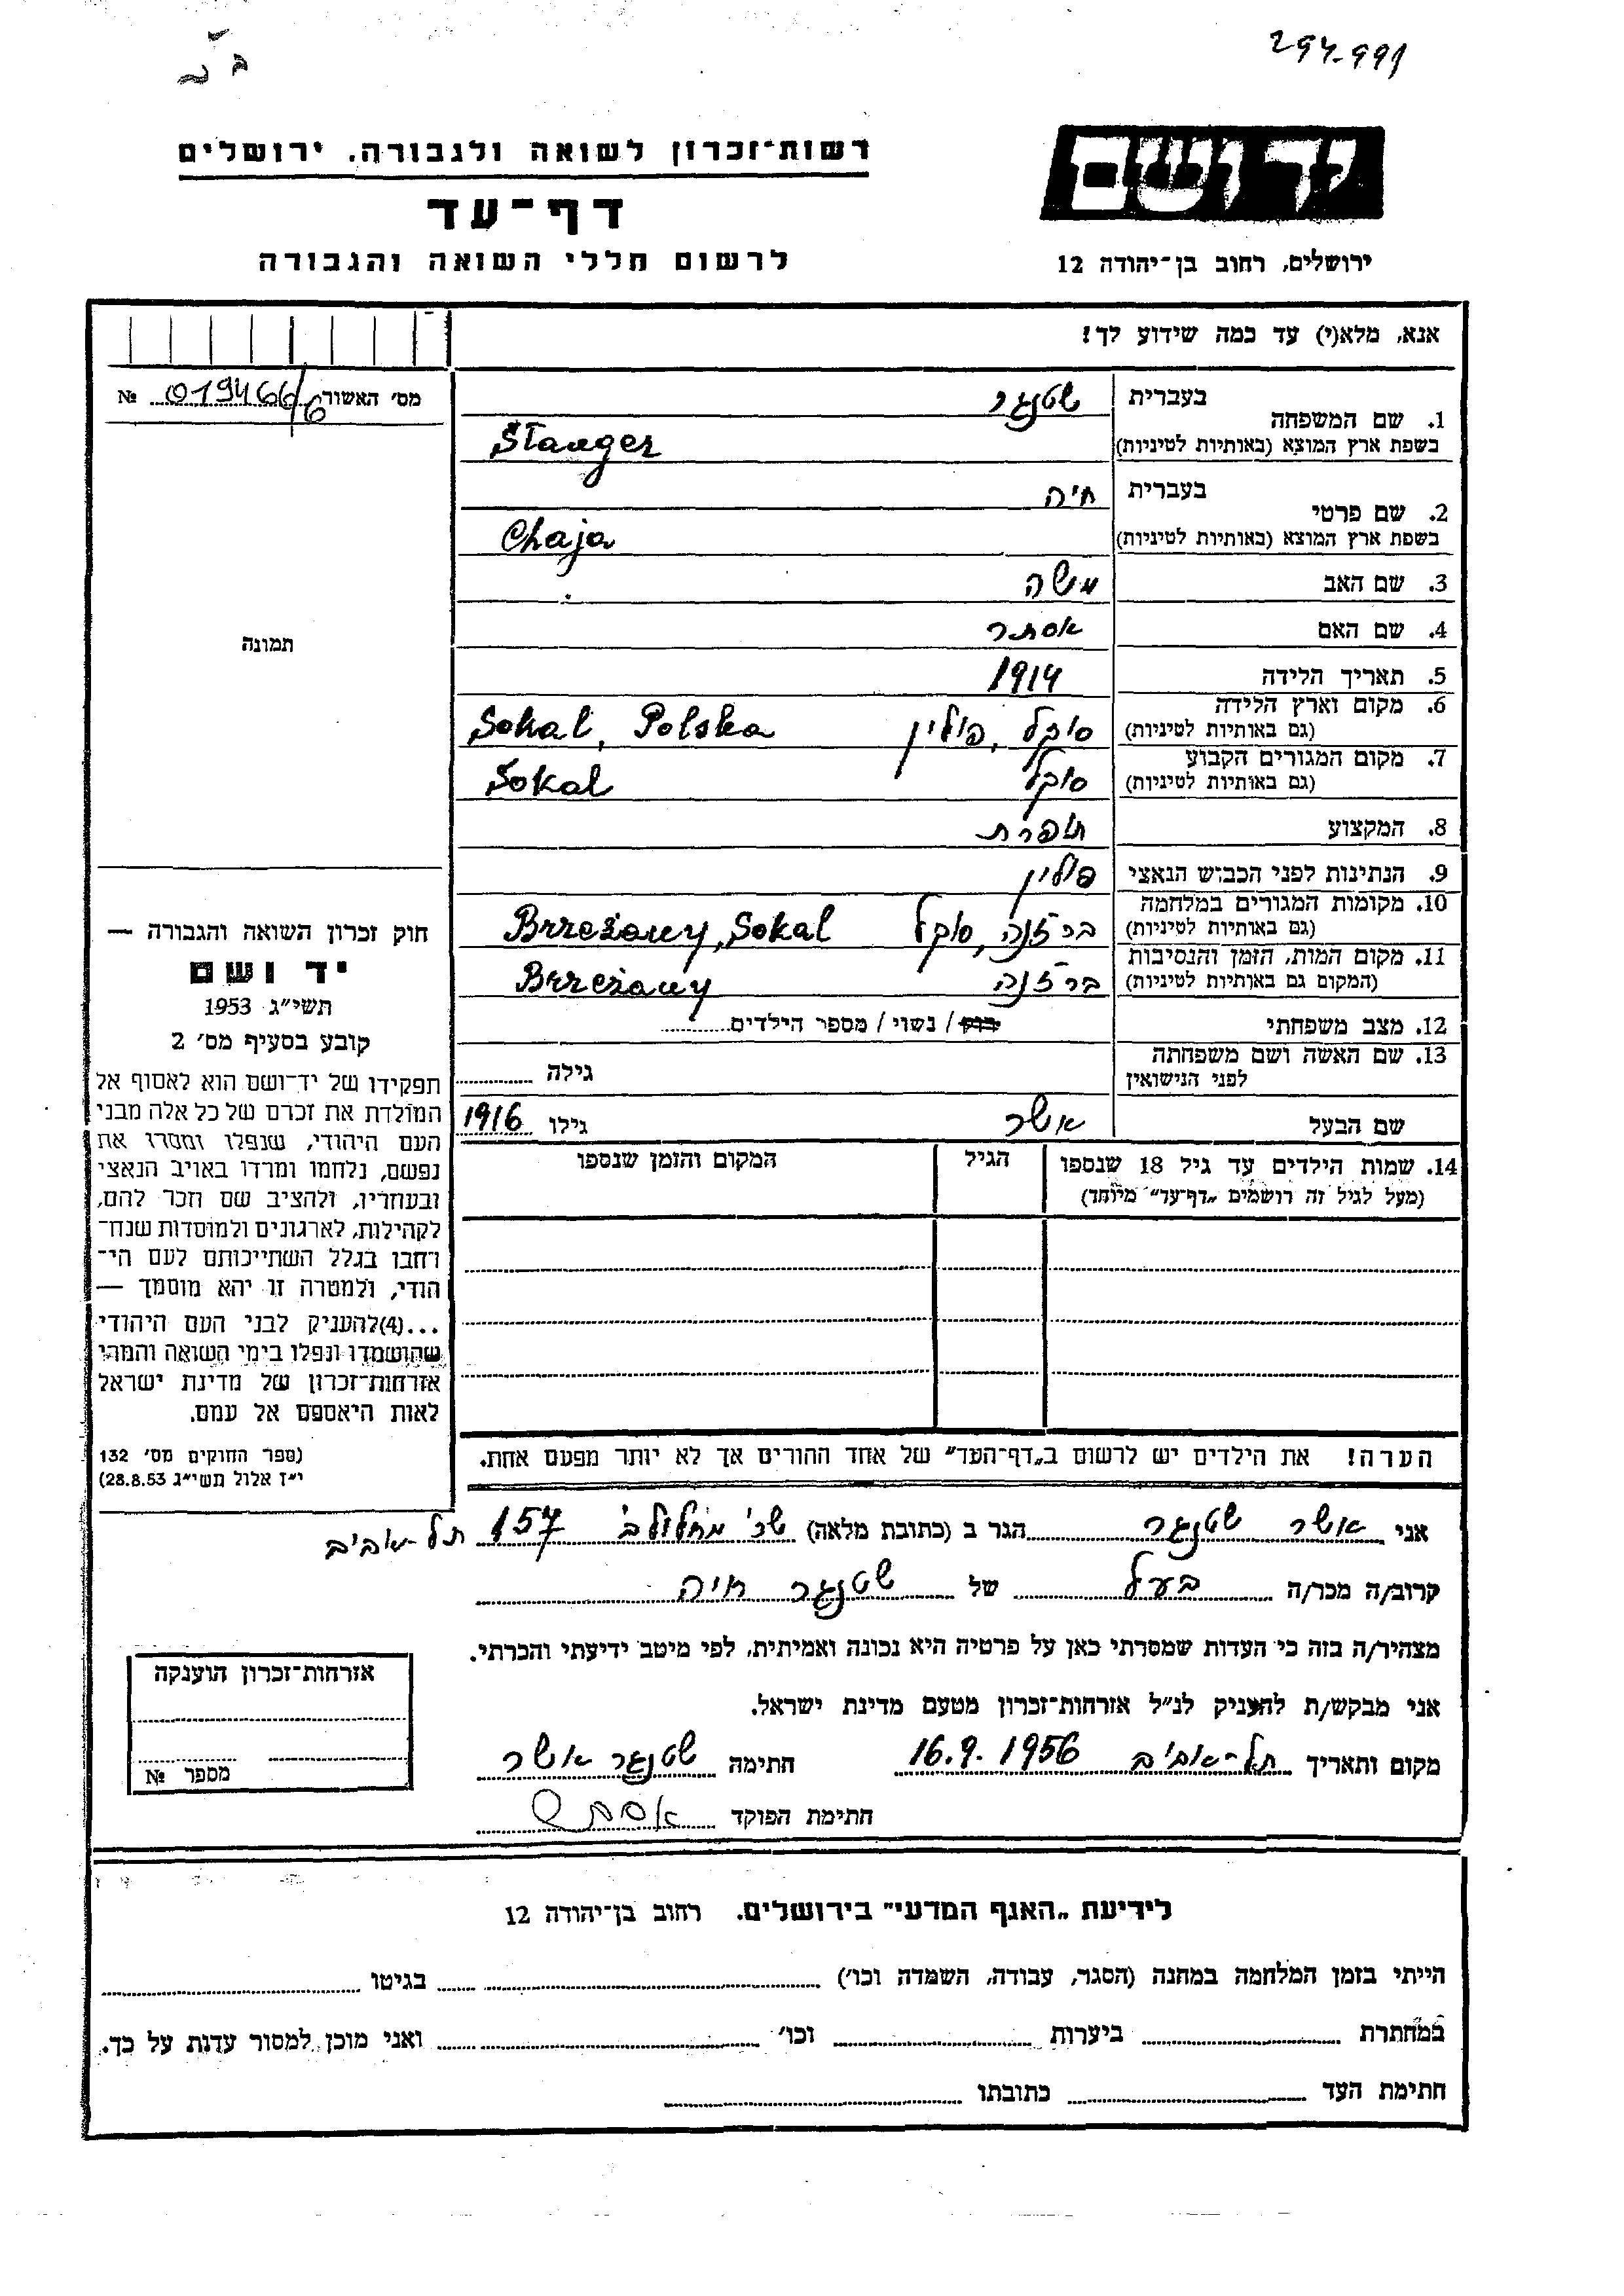 294-991
ב"ה
רשות־זכרון לשואה ולגבורה, ירושלים
דף־עד
לרשום חללי השואה והגבורה
ידושם
ירושלים, רחוב בן־יהודה 12
אנא, מלא(י) עד כמה שידוע לך!
מס׳ האשור № 019466/6
1. שם המשפחה
בעברית שטנגר
בשפת ארץ המוצא (באותיות לטיניות) Stanger
2. שם פרטי
בעברית חיה
בשפת ארץ המוצא (באותיות לטיניות) Chaja
3. שם האב משה
4. שם האם אסתר
5. תאריך הלידה 1914
6. מקום וארץ הלידה
(גם באותיות לטיניות) סוקל, פולין Sokal, Polska
7. מקום המגורים הקבוע
(גם באותיות לטיניות) סוקל Sokal
8. המקצוע תופרת
9. הנתינות לפני הכבוש הנאצי פולין
10. מקומות המגורים במלחמה
(גם באותיות לטיניות) ברז'נה, סוקל Brreżany, Sokal
11. מקום המות, הזמן והנסיבות
(המקום גם באותיות לטיניות) ברז'נה Brreżany
12. מצב משפחתי רוק / נשוי / מספר הילדים
13. שם האשה ושם משפחתה
לפני הנישואין גילה
שם הבעל אשר גילו 1916
14. שמות הילדים עד גיל 18 שנספו הגיל המקום והזמן שנספו
(מעל לגיל זה רושמים „דף־עד" מיוחד)
הערה! את הילדים יש לרשום ב„דף־העד" של אחד ההורים אך לא יותר מפעם אחת.
תמונה
חוק זכרון השואה והגבורה —
יד ושם
תשי"ג 1953
קובע בסעיף מס׳ 2
תפקידו של יד־ושם הוא לאסוף אל
המולדת את זכרם של כל אלה מבני
העם היהודי, שנפלו ומסרו את
נפשם, נלחמו ומרדו באויב הנאצי
ובעוזריו, ולהציב שם וזכר להם,
לקהילות, לארגונים ולמוסדות שנח־
רחבו בגלל השתייכותם לעם הי־
הודי, ולמטרה זו יהא מוסמך —
...(4)להעניק לבני העם היהודי
שהושמדו ונפלו בימי השואה והמרי
אזרחות־זכרון של מדינת ישראל
לאות היאספם אל עמם.
(ספר החוקים מס׳ 132
י"ז אלול תשי"ג 28.8.53)
אני אשר שטנגר הגר ב (כתובת מלאה) שכ' מחלול ב' 157 תל-אביב
קרוב/ה מכר/ה בעל של שטנגר חיה
מצהיר/ה בזה כי העדות שמסרתי כאן על פרטיה היא נכונה ואמיתית, לפי מיטב ידיעתי והכרתי.
אני מבקש/ת להעניק לנ"ל אזרחות־זכרון מטעם מדינת ישראל.
מקום ותאריך תל-אביב 16.9.1956 חתימה שטנגר אשר
חתימת הפוקד
אזרחות־זכרון הוענקה
מספר №
לידיעת „האגף המדעי" בירושלים, רחוב בן־יהודה 12
הייתי בזמן המלחמה במחנה (הסגר, עבודה, השמדה וכו׳) בגיטו
במחתרת ביערות וכו׳ ואני מוכן למסור עדות על כך.
חתימת העד כתובתו